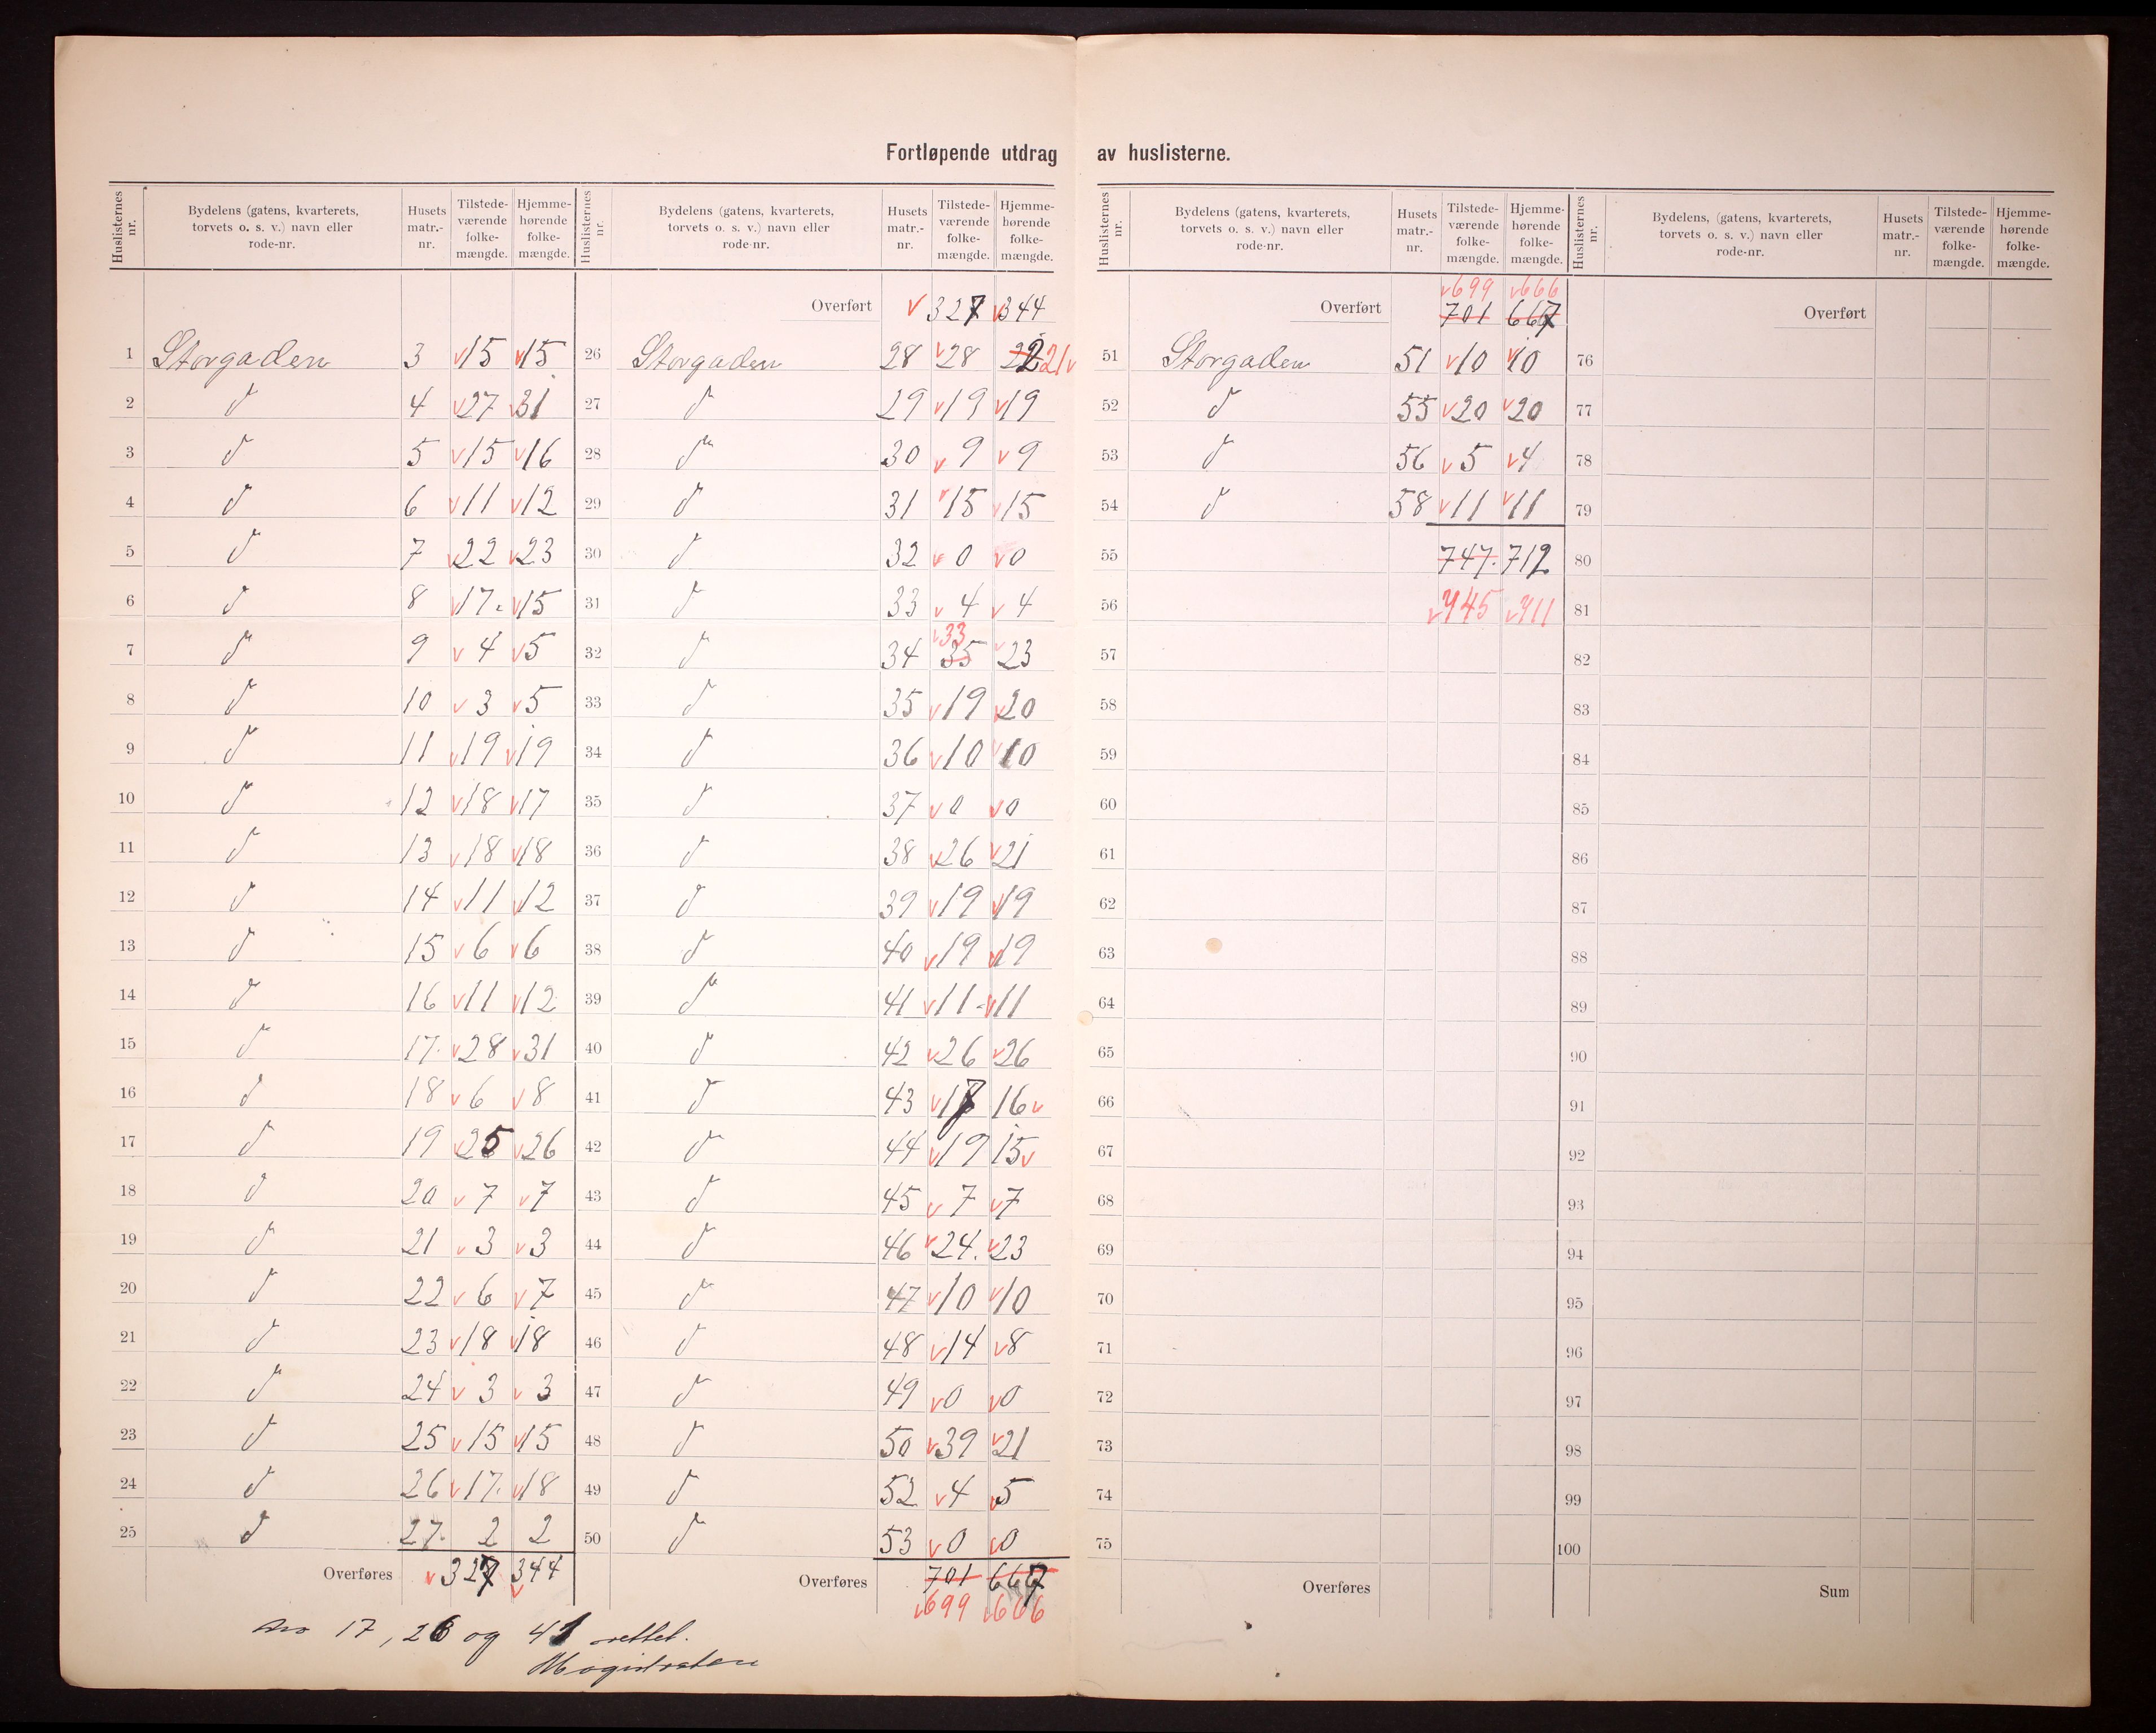 Fortløpende utdrag av huslisterne.
Huslisternes nr. | Bydelens (gatens, kvarterets, torvets o. s. v.) navn eller rode-nr. | Husets matr.-nr. | Tilstede-værende folke-mængde. | Hjemme-hørende folke-mængde.
1 Storgaden 3 15 15
2 d 4 27 31
3 d 5 15 16
4 d 6 11 12
5 d 7 22 23
6 d 8 17. 15
7 d 9 4 5
8 d 10 3 5
9 d 11 19 19
10 d 12 18 17
11 d 13 18 18
12 d 14 11 12
13 d 15 6 6
14 d 16 11 12
15 d 17. 28 31
16 d 18 6 8
17 d 19 25 26
18 d 20 7 7
19 d 21 3 3
20 d 22 6 7
21 d 23 18 18
22 d 24 3 3
23 d 25 15 15
24 d 26 17. 18
25 d 27. 2 2
Overføres 327 344
Huslisternes nr. | Bydelens (gatens, kvarterets, torvets o. s. v.) navn eller rode-nr. | Husets matr.-nr. | Tilstede-værende folke-mængde. | Hjemme-hørende folke-mængde.
Overført 327 344
26 Storgaden 28 28 22 21
27 d 29 19 19
28 d 30 9 9
29 d 31 15 15
30 d 32 0 0
31 d 33 4 4
32 d 34 35 33 23
33 d 35 19 20
34 d 36 10 10
35 d 37 0 0
36 d 38 26 21
37 d 39 19 19
38 d 40 19 19
39 d 41 11 11
40 d 42 26 26
41 d 43 17 16
42 d 44 19 15
43 d 45 7 7
44 d 46 24. 23
45 d 47 10 10
46 d 48 14 8
47 d 49 0 0
48 d 50 39 21
49 d 52 4 5
50 d 53 0 0
Overføres 701 667
699 666
Huslisternes nr. | Bydelens (gatens, kvarterets, torvets o. s. v.) navn eller rode-nr. | Husets matr.-nr. | Tilstede-værende folke-mængde. | Hjemme-hørende folke-mængde.
699 666
Overført 701 667
51 Storgaden 51 10 10
52 d 55 20 20
53 d 56 5 4
54 d 58 11 11
55 747. 712
56 745 711
57
58
59
60
61
62
63
64
65
66
67
68
69
70
71
72
73
74
75
Overføres
Huslisternes nr. | Bydelens, (gatens, kvarterets, torvets o. s. v.) navn eller rode-nr. | Husets matr.-nr. | Tilstede-værende folke-mængde. | Hjemme-hørende folke-mængde.
Overført
76
77
78
79
80
81
82
83
84
85
86
87
88
89
90
91
92
93
94
95
96
97
98
99
100
Sum
no 17, 26 og 41 rettet.
Magistraten